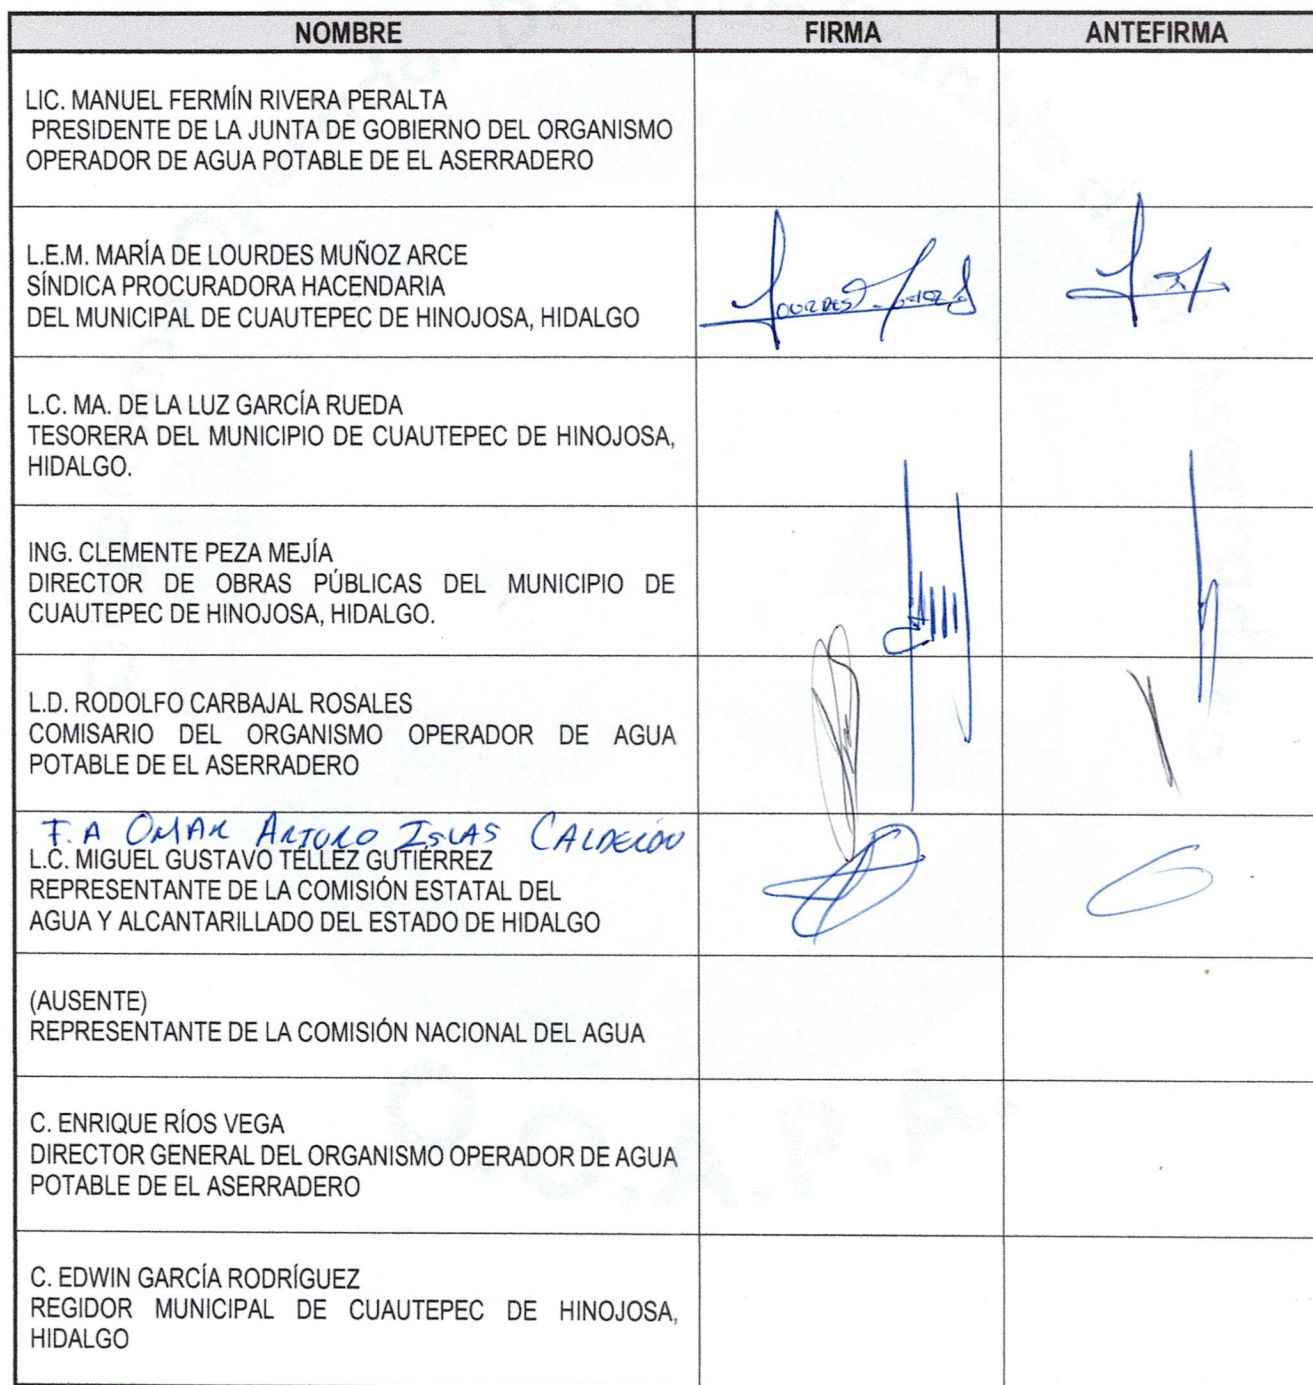 NOMBRE FIRMA ANTEFIRMA
LIC. MANUEL FERMÍN RIVERA PERALTA
PRESIDENTE DE LA JUNTA DE GOBIERNO DEL ORGANISMO
OPERADOR DE AGUA POTABLE DE EL ASERRADERO
L.E.M. MARÍA DE LOURDES MUÑOZ ARCE
SÍNDICA PROCURADORA HACENDARIA
DEL MUNICIPAL DE CUAUTEPEC DE HINOJOSA, HIDALGO
L.C. MA. DE LA LUZ GARCÍA RUEDA
TESORERA DEL MUNICIPIO DE CUAUTEPEC DE HINOJOSA,
HIDALGO.
ING. CLEMENTE PEZA MEJÍA
DIRECTOR DE OBRAS PÚBLICAS DEL MUNICIPIO DE
CUAUTEPEC DE HINOJOSA, HIDALGO.
L.D. RODOLFO CARBAJAL ROSALES
COMISARIO DEL ORGANISMO OPERADOR DE AGUA
POTABLE DE EL ASERRADERO
F.A OMAR ARTURO ISLAS CALDERÓN
L.C. MIGUEL GUSTAVO TÉLLEZ GUTIÉRREZ
REPRESENTANTE DE LA COMISIÓN ESTATAL DEL
AGUA Y ALCANTARILLADO DEL ESTADO DE HIDALGO
(AUSENTE)
REPRESENTANTE DE LA COMISIÓN NACIONAL DEL AGUA
C. ENRIQUE RÍOS VEGA
DIRECTOR GENERAL DEL ORGANISMO OPERADOR DE AGUA
POTABLE DE EL ASERRADERO
C. EDWIN GARCÍA RODRÍGUEZ
REGIDOR MUNICIPAL DE CUAUTEPEC DE HINOJOSA,
HIDALGO